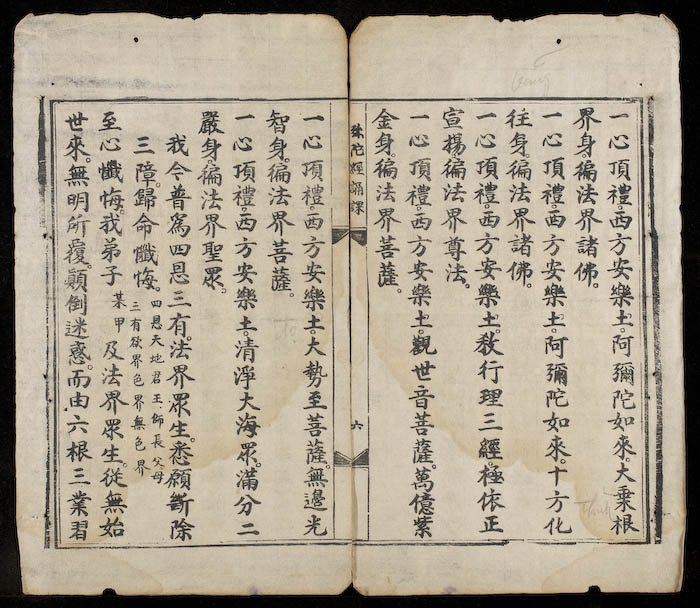 一心頂禮。西方安樂土。阿彌陀如來。大乗根
界身。徧法界諸佛。
一心頂禮。西方安樂土。阿彌陀如來。十方化
往身。徧法界諸佛。
一心頂禮。西方安樂土。教行理三經。極依正
宣揚徧法界尊法。
一心頂禮。西方安樂土。觀世音菩薩。萬億紫
金身。徧法界菩薩。
弥陀經誦課
六
一心頂禮。西方安樂土。大勢至菩薩。無邊光
智身。徧法界菩薩。
一心頂禮。西方安樂土。清淨大海眾。滿分二
嚴身。徧法界聖眾。
我今普為四恩三有。法界眾生。悉願斷除
三障。歸命懺悔。四恩天地君王師長父母
三有欲界色界無色界
至心懺悔。我弟子某甲及法界眾生。從無始
世來。無明所覆。顛倒迷惑。而由六根三業習